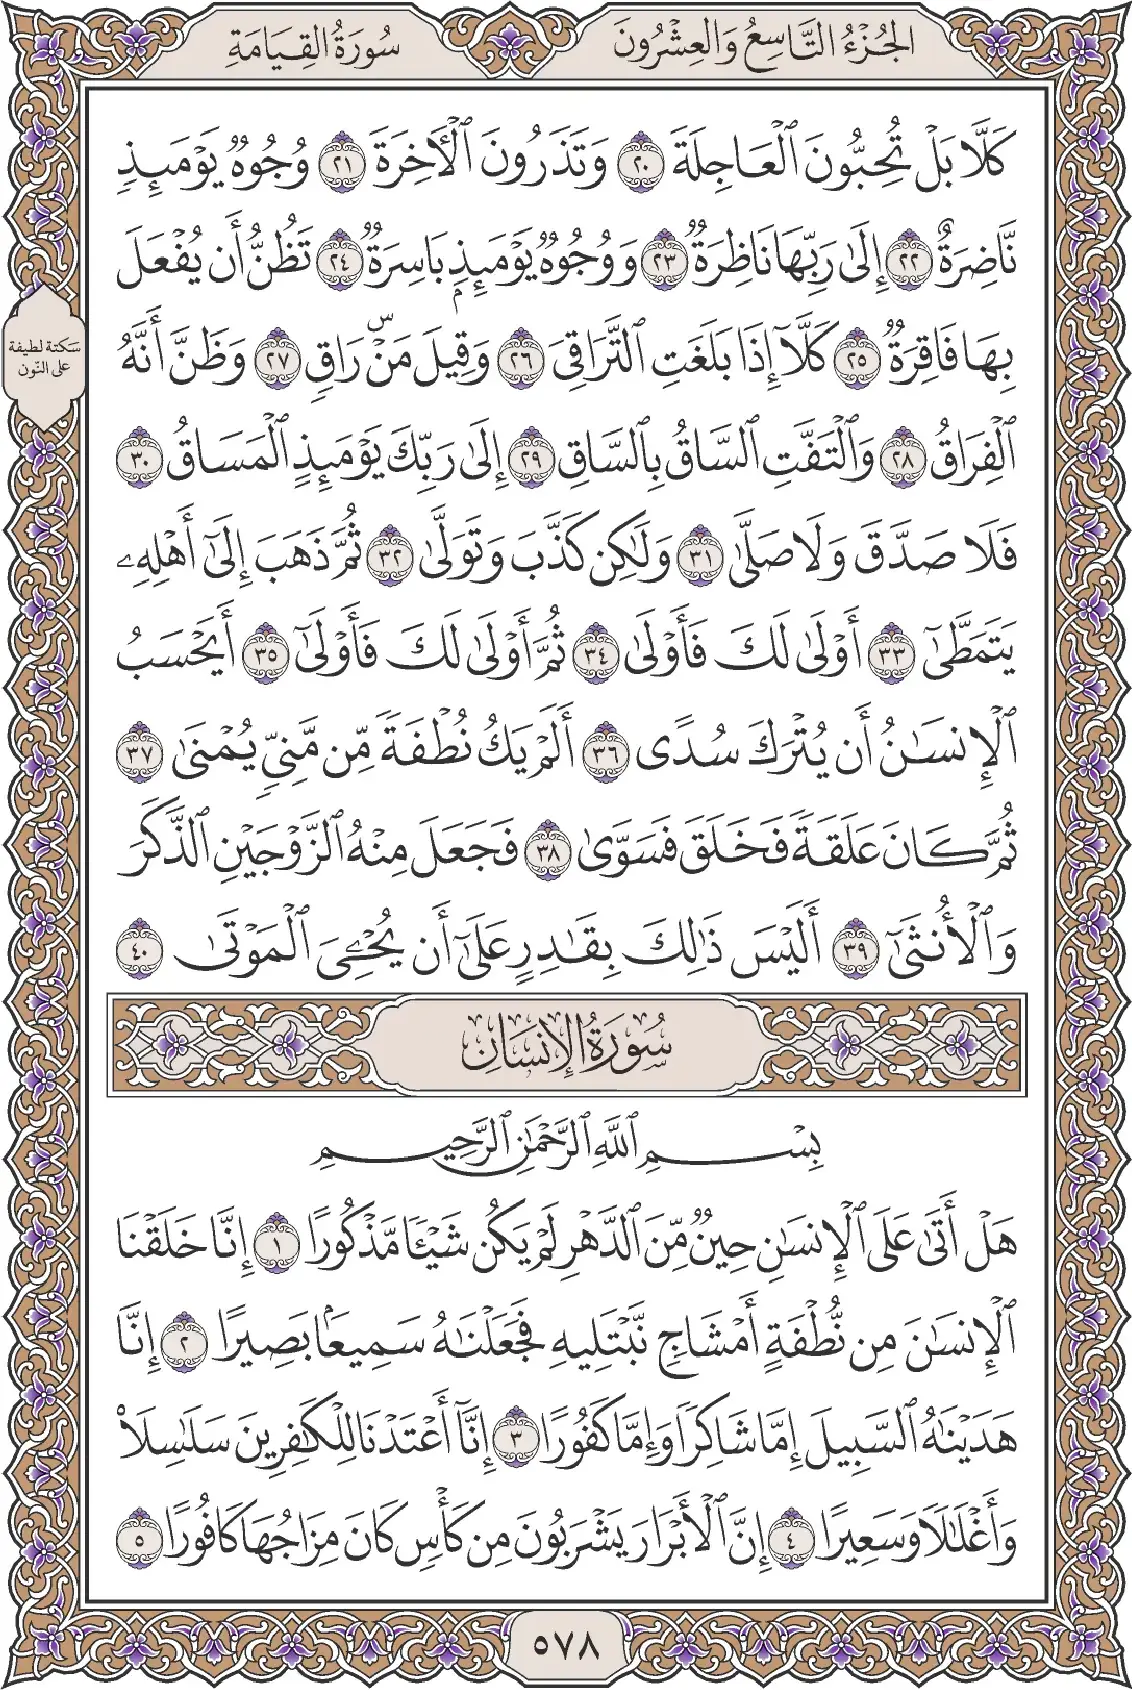 الجُزْءُ التَّاسِعُ وَالعِشْرُونَ
سُورَةُ القِيَامَةِ
كَلَّا بَلْ تُحِبُّونَ ٱلْعَاجِلَةَ ٢٠ وَتَذَرُونَ ٱلْأٓخِرَةَ ٢١ وُجُوهٌ يَوْمَئِذٍ
نَّاضِرَةٌ ٢٢ إِلَىٰ رَبِّهَا نَاظِرَةٌ ٢٣ وَوُجُوهٌ يَوْمَئِذِۭ بَاسِرَةٌ ٢٤ تَظُنُّ أَن يُفْعَلَ
بِهَا فَاقِرَةٌ ٢٥ كَلَّآ إِذَا بَلَغَتِ ٱلتَّرَاقِيَ ٢٦ وَقِيلَ مَنْۜ رَاقٍ ٢٧ وَظَنَّ أَنَّهُ
ٱلْفِرَاقُ ٢٨ وَٱلْتَفَّتِ ٱلسَّاقُ بِٱلسَّاقِ ٢٩ إِلَىٰ رَبِّكَ يَوْمَئِذٍ ٱلْمَسَاقُ ٣٠
فَلَا صَدَّقَ وَلَا صَلَّىٰ ٣١ وَلَٰكِن كَذَّبَ وَتَوَلَّىٰ ٣٢ ثُمَّ ذَهَبَ إِلَىٰٓ أَهْلِهِۦ
يَتَمَطَّىٰٓ ٣٣ أَوْلَىٰ لَكَ فَأَوْلَىٰ ٣٤ ثُمَّ أَوْلَىٰ لَكَ فَأَوْلَىٰٓ ٣٥ أَيَحْسَبُ
ٱلْإِنسَٰنُ أَن يُتْرَكَ سُدًى ٣٦ أَلَمْ يَكُ نُطْفَةً مِّن مَّنِيٍّ يُمْنَىٰ ٣٧
ثُمَّ كَانَ عَلَقَةً فَخَلَقَ فَسَوَّىٰ ٣٨ فَجَعَلَ مِنْهُ ٱلزَّوْجَيْنِ ٱلذَّكَرَ
وَٱلْأُنثَىٰٓ ٣٩ أَلَيْسَ ذَٰلِكَ بِقَٰدِرٍ عَلَىٰٓ أَن يُحْـِۧيَ ٱلْمَوْتَىٰ ٤٠
سُورَةُ الإِنسَانِ
بِسْمِ ٱللَّهِ ٱلرَّحْمَٰنِ ٱلرَّحِيمِ
هَلْ أَتَىٰ عَلَى ٱلْإِنسَٰنِ حِينٌ مِّنَ ٱلدَّهْرِ لَمْ يَكُن شَيْـًٔا مَّذْكُورًا ١ إِنَّا خَلَقْنَا
ٱلْإِنسَٰنَ مِن نُّطْفَةٍ أَمْشَاجٍ نَّبْتَلِيهِ فَجَعَلْنَٰهُ سَمِيعَۢا بَصِيرًا ٢ إِنَّا
هَدَيْنَٰهُ ٱلسَّبِيلَ إِمَّا شَاكِرًا وَإِمَّا كَفُورًا ٣ إِنَّآ أَعْتَدْنَا لِلْكَٰفِرِينَ سَلَٰسِلَاْ
وَأَغْلَٰلًا وَسَعِيرًا ٤ إِنَّ ٱلْأَبْرَارَ يَشْرَبُونَ مِن كَأْسٍ كَانَ مِزَاجُهَا كَافُورًا ٥
سكتة لطيفة
على النّون
٥٧٨